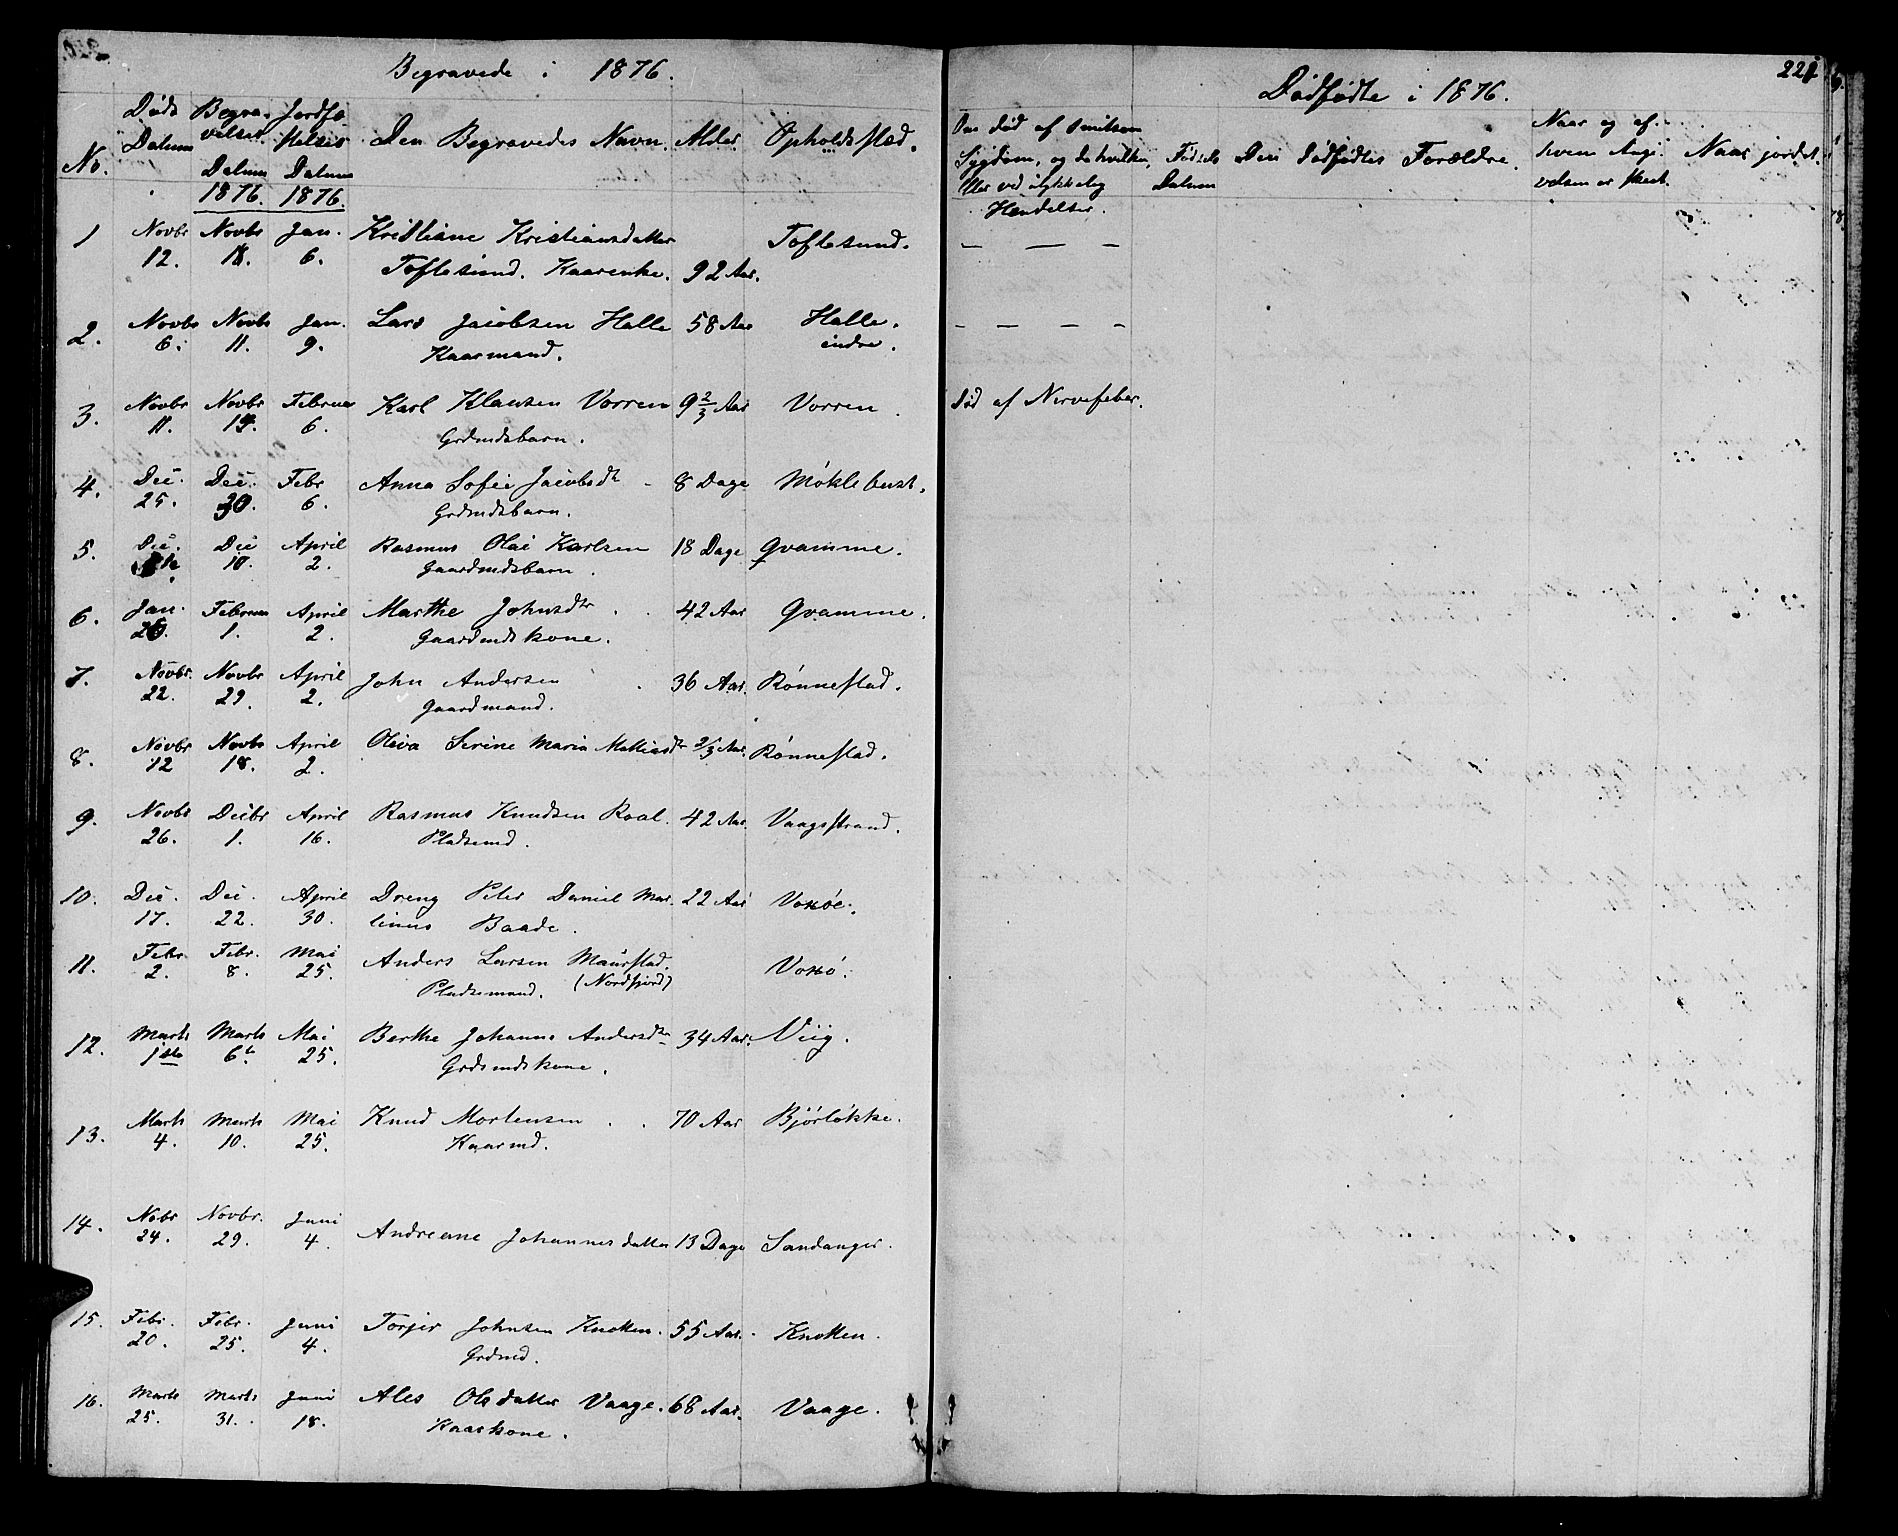 Begravede i 1876.
No. Døds Datum Begravelses Datum 1876. Jordfæstelses Datum 1876. Den Begravedes Navn. Alder. Opholdssted.
1 Novbr 12. Novbr 18. Jan. 6. Kristiane Kristiansdatter
Toflesund. Kaarenke. 92 Aar. Toflesund. — — —
2. Novbr 6. Novbr 11. Jan. 9. Lars Jacobsen Halle 58 Aar Halle indre. — — — —
Kaarmand.
3. Novbr 11. Novbr 19. Februar 6. Karl Klausen Vorren 9 2/3 Aar Vorren. Død af Nervefeber.
Grdmdsbarn.
4. Dec. 25. Dec. 30. Febr 6. Anna Sofie Jacobsdtr 8 Dage Møklebust.
Grdmdsbarn.
5. Dec. Dec 10. April 2. Rasmus Olai Karlsen 18 Dage Qvamme.
Gaardmdsbarn.
6. Jan. 26. Februar 1. April 2. Marthe Johnsdtr 42 Aar Qvamme.
Gaardmdskone.
7. Novbr. 22. Novbr 29. April 2. John Andersen 36 Aar. Rønnestad.
Gaardmand.
8. Novbr 12 Novbr 18. April 2. Oliva Serine Maria Mathiasdtr 2/3 Aar. Rønnestad.
9. Novbr 26. Decbr 1. April 16. Rasmus Knudsen Roal. 42 Aar. Vaagstrand.
Pladsmd.
10. Dec. 17. Dec. 22. April 30. Dreng Peter Daniel Mar- 22 Aar Voxøe.
linus Baade.
11. Febr. 2. Febr. 8. Mai 25. Anders Larsen Maurstad. Voxø.
Pladsemand. (Nordfjord)
12. Marts 1ste Marts 6te Mai 25. Berthe Johanne Andersdtr 34 Aar. Viig.
Grdmdskone.
13. Marts 4. Marts 10. Mai 25. Knud Mortensen 70 Aar Bjørløkke.
Kaarmd.
14. Nobr 24. Novbr. 29. Juni 4. Andreane Johannesdatter 13 Dage Sandanger.
15. Febr. 20. Febr. 25. Juni 4. Torjer Johnsen Knotten. 55 Aar. Knotten.
Grdmd.
16. Marts 25. Marts 31. Juni 18. Ales Olsdatter Vaage. 68 Aar. Vaage.
Kaarkone.
221
Dødfødte i 1876.
Om død af smitsom
Sygdom, og da hvilken,
eller ved ulykkelig
Hændelse.
Fødsels Datum
Den Dødfødtes Forældre.
Naar og af
hvem Angi-
velsen er skeet.
Naar jordet.